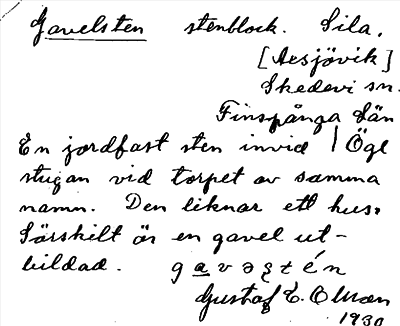 Gavelsten stenblock. Sila.
[Aesjövik]
Skedevi sn.
Finspånga län Ögl
En jordfast sten invid
stugan vid torpet av samma
namn. Den liknar ett hus.
Särskilt är en gavel ut-
bildad. gavəʂtén
Gustaf E. Olman
1930